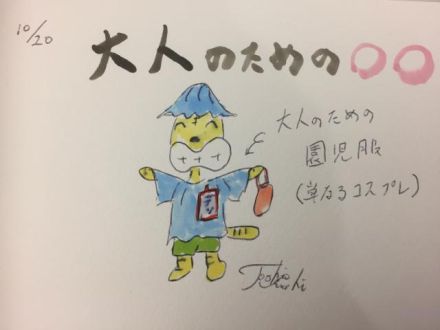 10/20
大人のための〇〇
大人のための
園児服
(単なるコスプレ)